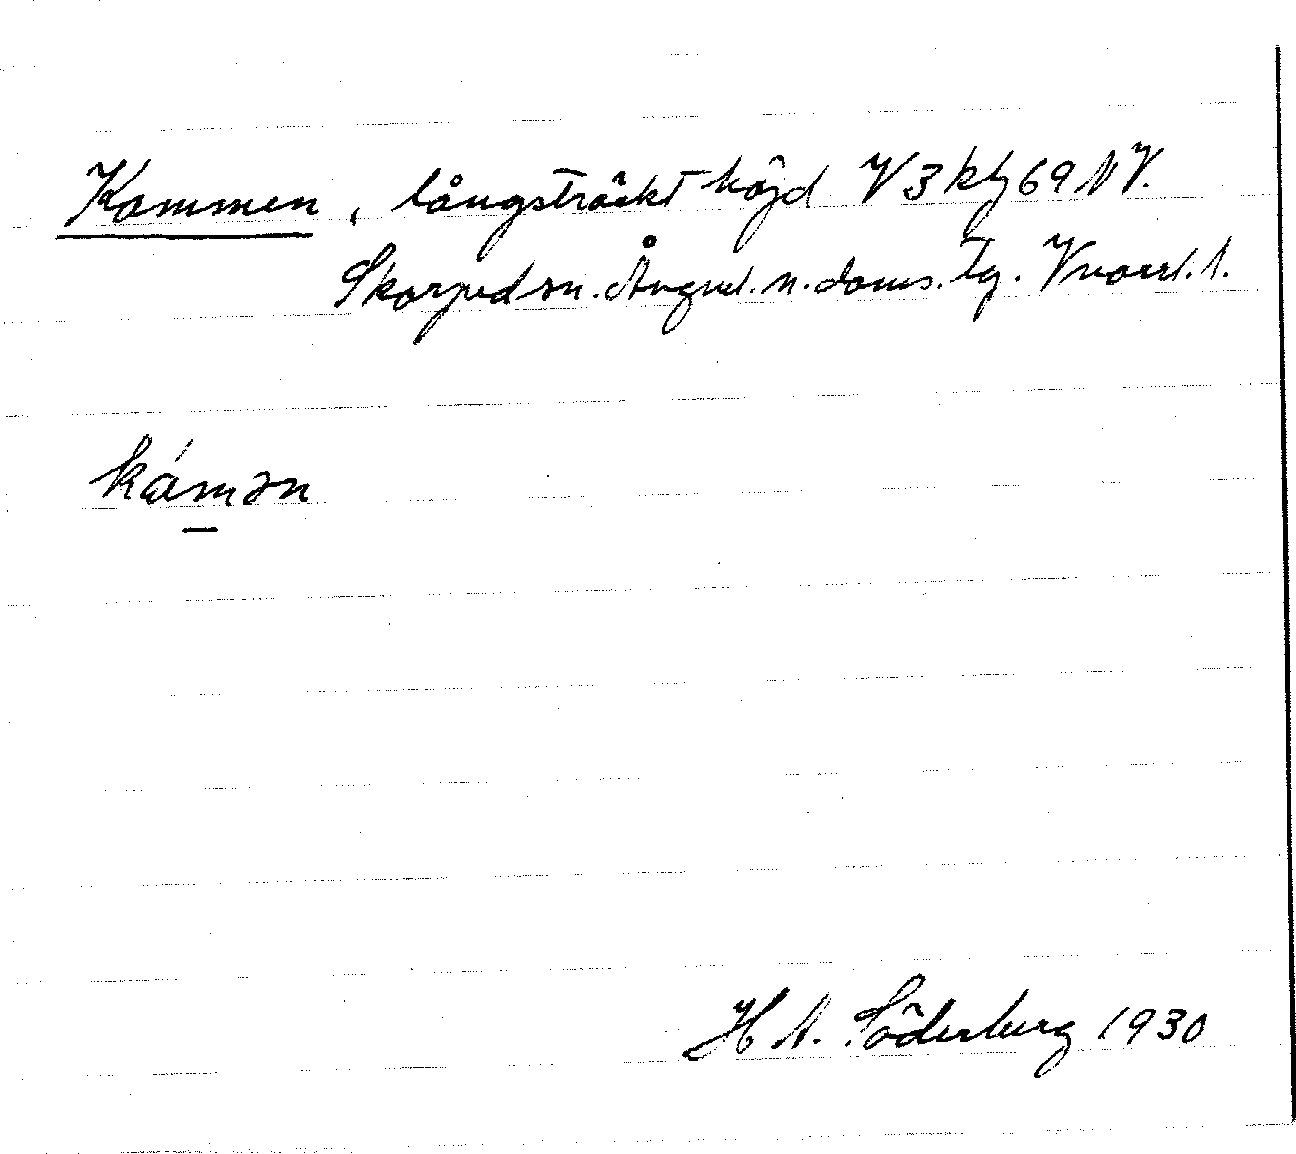 Kammen, långsträckt höjd V 3 kbj 69 NV.
Skorped sn. Ångml. n. doms. tg. Vnorrl. l.
kámən
H A. Söderberg 1930